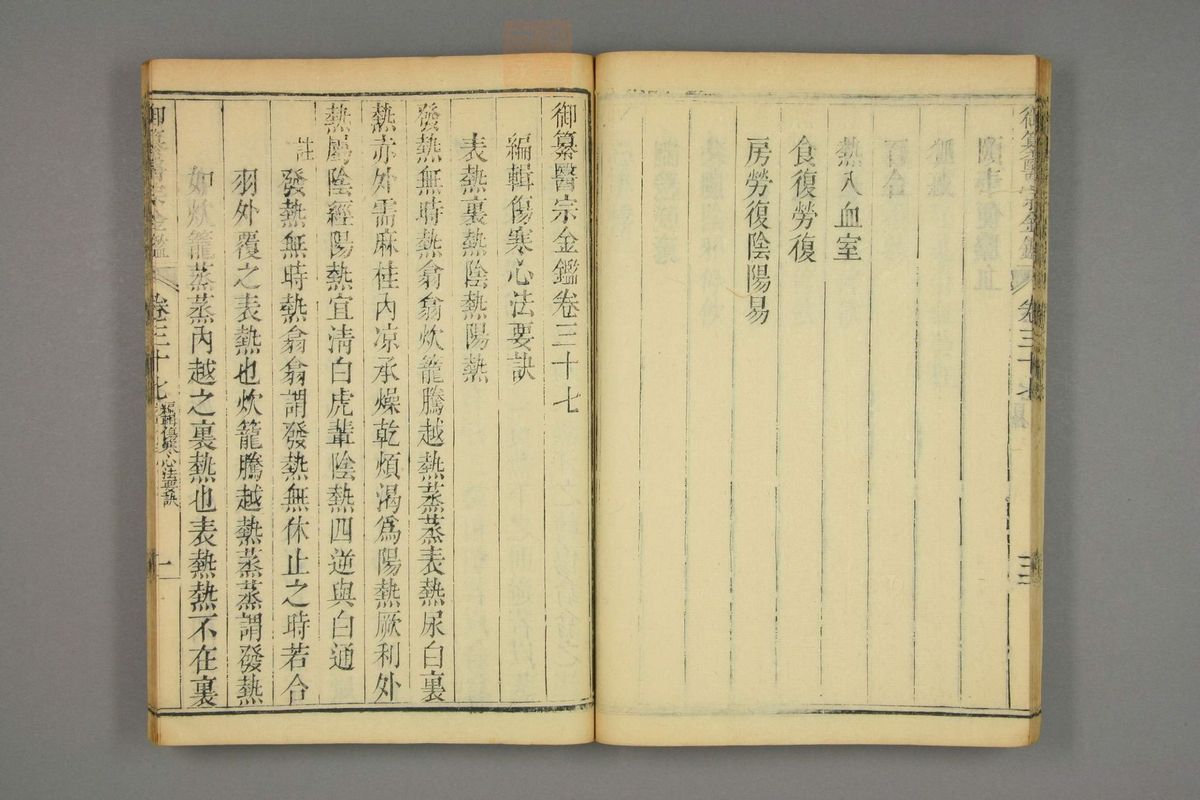 御纂醫宗金鑑 卷三十七 三
熱入血室
食復勞復
房勞復陰陽易
御纂醫宗金鑑卷三十七
編輯傷寒心法要訣
表熱裏熱陰熱陽熱
發熱無時熱翕翕炊籠騰越熱蒸蒸表熱尿白裏
熱赤外需麻桂內凉承燥乾煩渴爲陽熱厥利外
熱屬陰經陽熱宜清白虎輩陰熱四逆與白通
註發熱無時熱翕翕謂發熱無休止之時若合
羽外覆之表熱也炊籠騰越熱蒸蒸謂發熱
如炊籠蒸蒸內越之裏熱也表熱熱不在裏
御纂醫宗金鑑 卷三十七 編輯傷寒心法要訣 一